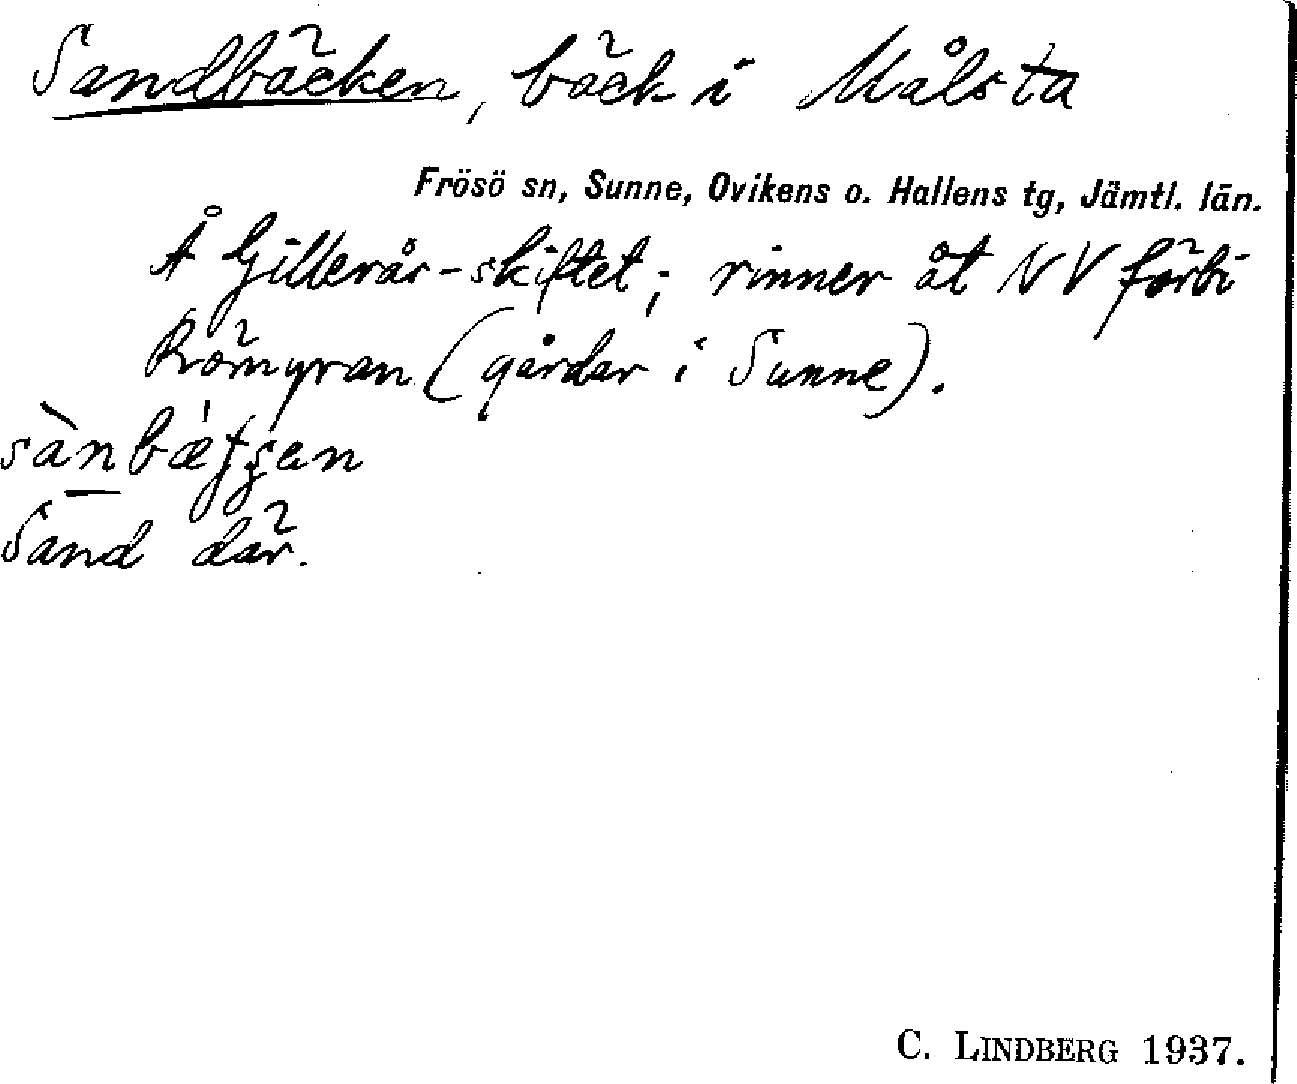 Sandbäcken, bäck i Målsta
Frösö sn, Sunne, Ovikens o. Hallens tg, Jämtl. län.
Å Gillerås-skiftet; rinner åt NV förbi
Römyran (gårdar i Sunne).
Sand där.
C. LINDBERG 1937.